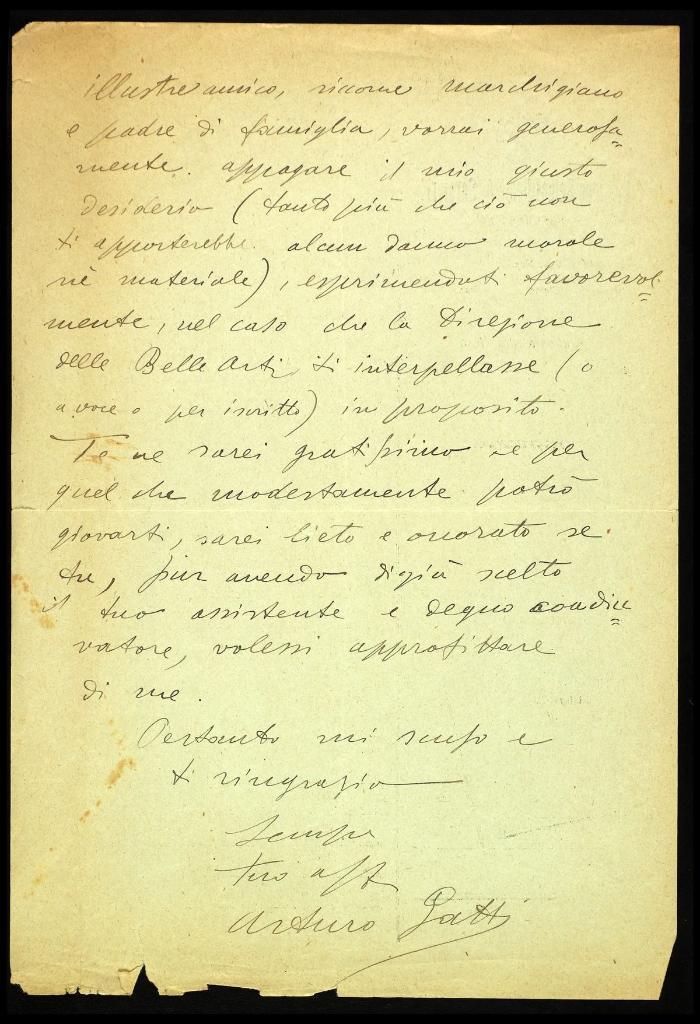 illustre amico, siccome marchigiano
e padre di famiglia, vorrai generosa=
mente appagare il mio giusto
desiderio (tanto più che ciò non
ti apporterebbe alcun danno morale
nè materiale), esprimendoti favorevol=
mente, nel caso che la Direzione
delle Belle Arti ti interpellasse (o
a voce o per iscritto) in proposito.
Te ne sarei gratissimo e per
quel che modestamente potrò
giovarti, sarei lieto e onorato se
tu, pur avendo digià scelto
il tuo assistente e degno coadiu=
vatore, volessi approfittare
di me.
Pertanto mi scuso e
ti ringrazio
Sempre
tuo aff
Arturo Gatti